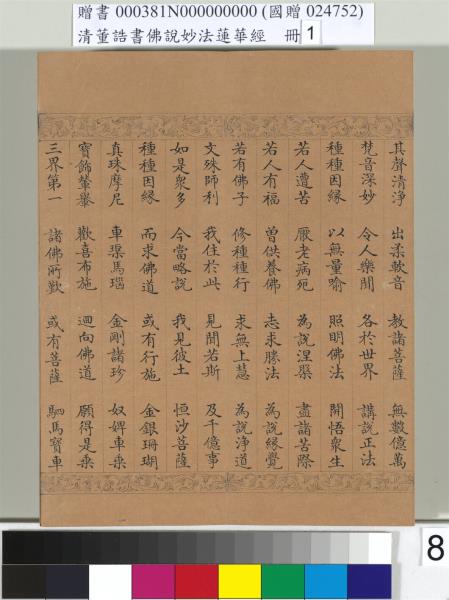 贈書 000381N000000000 (國贈 024752)
清董誥書佛說妙法蓮華經　冊 1
其聲清淨　出柔軟音　教諸菩薩　無數億萬
梵音深妙　令人樂聞　各於世界　講說正法
種種因緣　以無量喻　照明佛法　開悟眾生
若人遭苦　厭老病死　為說涅槃　盡諸苦際
若人有福　曾供養佛　志求勝法　為說緣覺
若有佛子　修種種行　求無上慧　為說淨道
文殊師利　我住於此　見聞若斯　及千億事
如是眾多　今當略說　我見彼土　恒沙菩薩
種種因緣　而求佛道　或有行施　金銀珊瑚
真珠摩尼　車璖馬瑙　金剛諸珍　奴婢車乘
寶飾輦輿　歡喜布施　迴向佛道　願得是乘
三界第一　諸佛所歎　或有菩薩　駟馬寶車
8